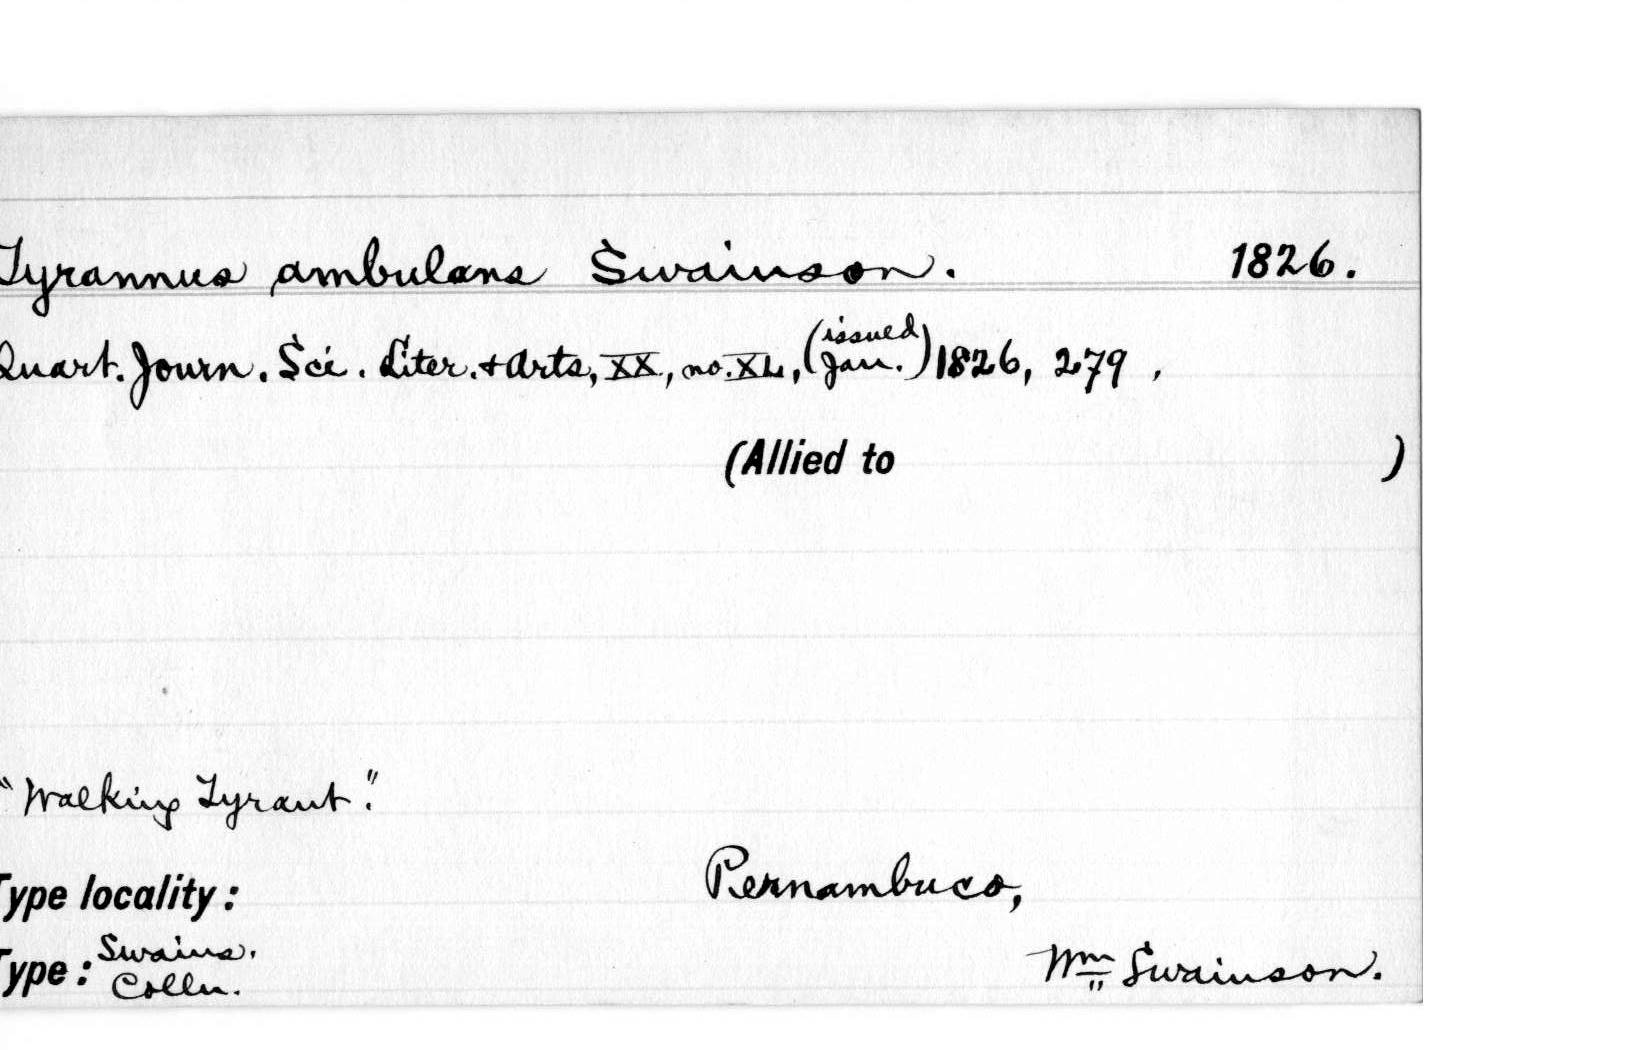 Tyrannus ambulans Swainson. 1826.
Quart. Journ. Sci. Liter. + Arts, XX, no. XL, (issued Jan.) 1826, 279,
(Allied to )
"Walking Tyrant."
Type locality: Pernambuco,
Type: Swains. Colln. Wm Swainson.